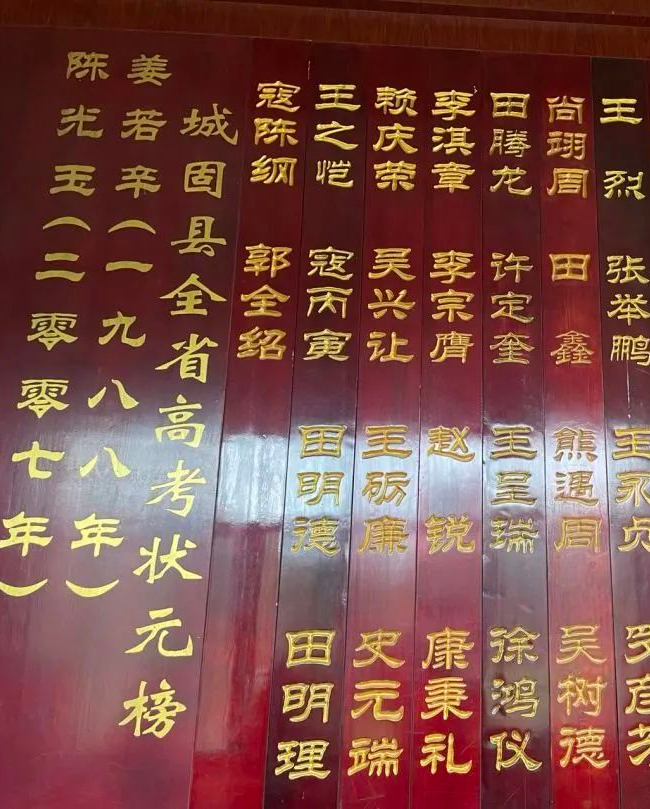 王烈 张举鹏 王永贞
尚翊周 田鑫 熊遇周 吴树德
田腾龙 许定奎 王呈瑞 徐鸿仪
李淇章 李宗膺 赵锐 康秉礼
赖庆荣 吴兴让 王砺廉 史元端
王之恺 寇丙寅 田明德 田明理
寇陈纲 郭全绍
城固县全省高考状元榜
姜若辛(一九八八年)
陈光玉(二零零七年)